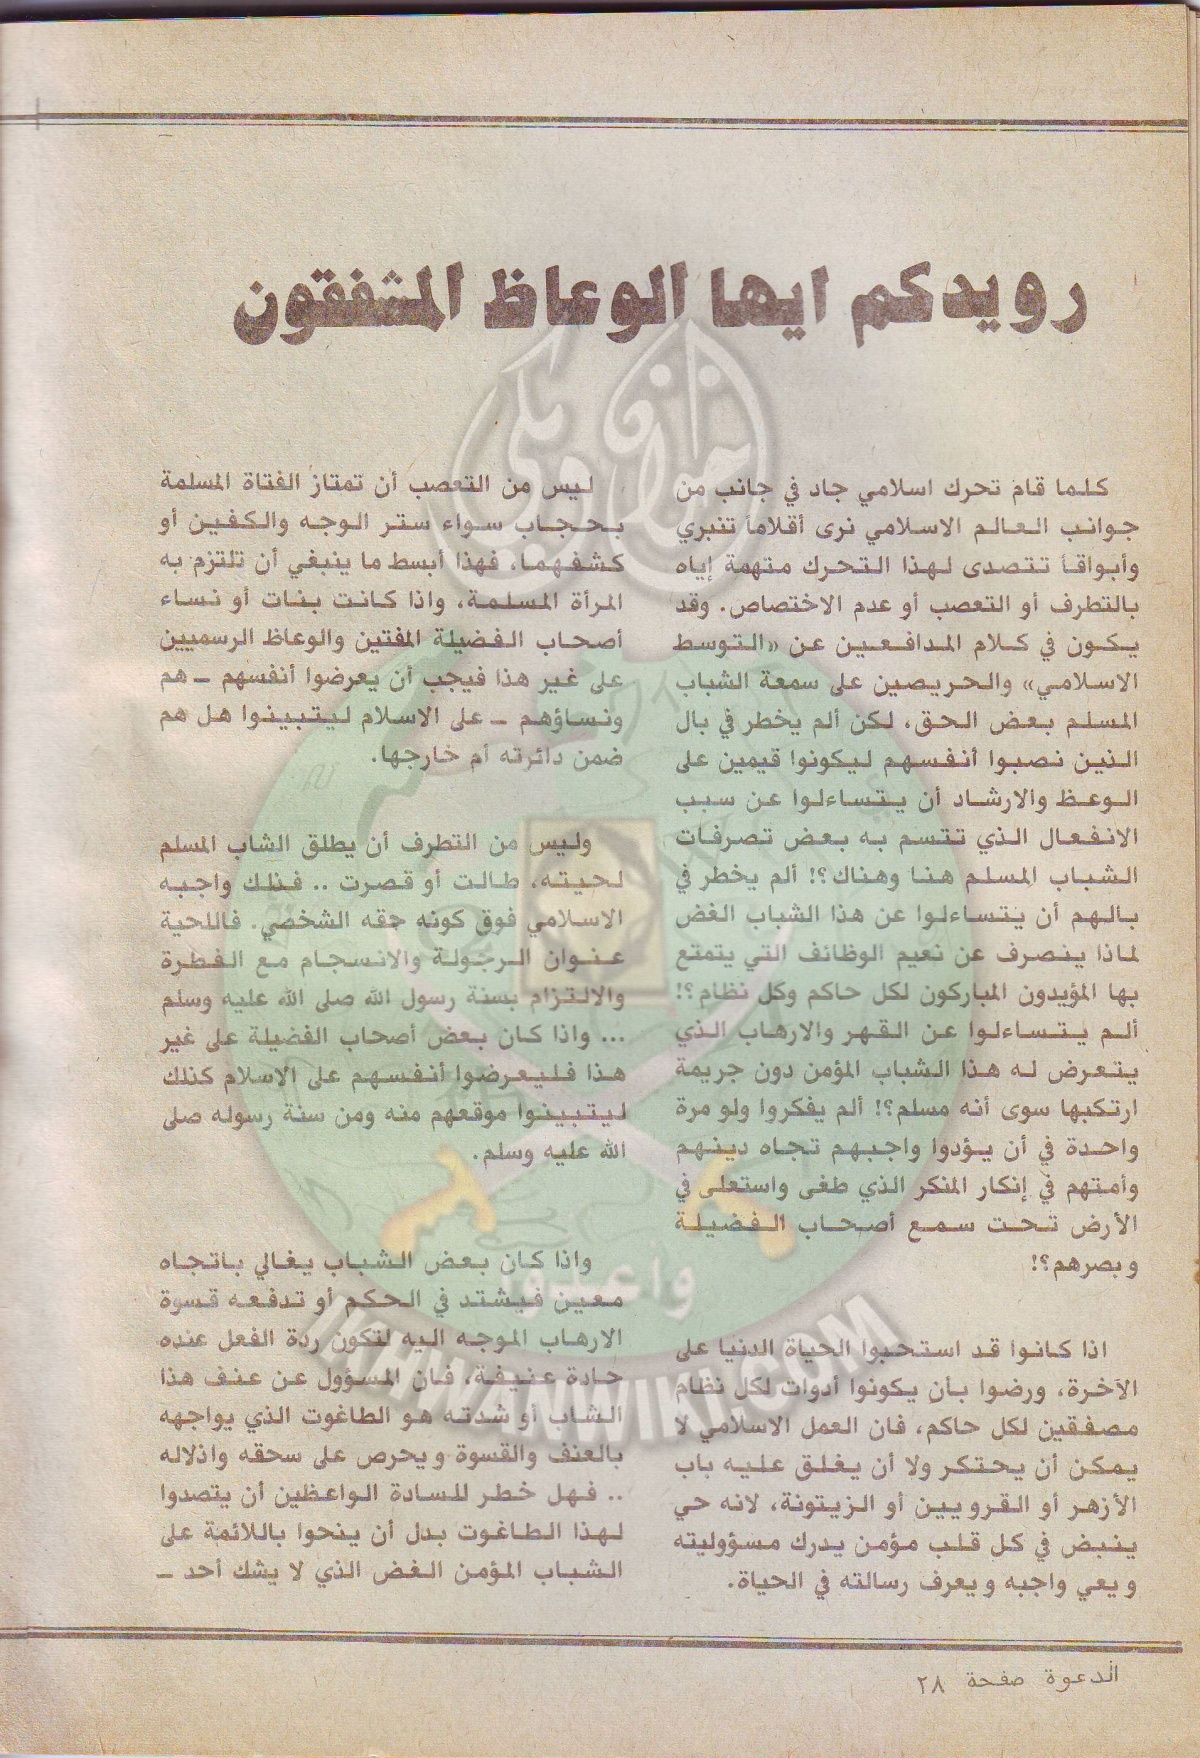 رويدكم ايها الوعاظ المشفقون
كلما قام تحرك اسلامي جاد في جانب من
جوانب العالم الاسلامي نرى أقلاماً تنبري
وأبواقاً تتصدى لهذا التحرك متهمة إياه
بالتطرف أو التعصب أو عدم الاختصاص. وقد
يكون في كلام المدافعين عن «التوسط
الاسلامي» والحريصين على سمعة الشباب
المسلم بعض الحق، لكن ألم يخطر في بال
الذين نصبوا أنفسهم ليكونوا قيمين على
الوعظ والارشاد أن يتساءلوا عن سبب
الانفعال الذي تتسم به بعض تصرفات
الشباب المسلم هنا وهناك؟! ألم يخطر في
بالهم أن يتساءلوا عن هذا الشباب الغض
لماذا ينصرف عن نعيم الوظائف التي يتمتع
بها المؤيدون المباركون لكل حاكم وكل نظام؟!
ألم يتساءلوا عن القهر والارهاب الذي
يتعرض له هذا الشباب المؤمن دون جريمة
ارتكبها سوى أنه مسلم؟! ألم يفكروا ولو مرة
واحدة في أن يؤدوا واجبهم تجاه دينهم
وأمتهم في إنكار المنكر الذي طغى واستعلى في
الأرض تحت سمع أصحاب الفضيلة
وبصرهم؟!
اذا كانوا قد استحبوا الحياة الدنيا على
الآخرة، ورضوا بأن يكونوا أدوات لكل نظام
مصفقين لكل حاكم، فان العمل الاسلامي لا
يمكن أن يحتكر ولا أن يغلق عليه باب
الأزهر أو القرويين أو الزيتونة، لانه حي
ينبض في كل قلب مؤمن يدرك مسؤوليته
ويعي واجبه ويعرف رسالته في الحياة.
ليس من التعصب أن تمتاز الفتاة المسلمة
بحجاب سواء ستر الوجه والكفين أو
كشفهما، فهذا أبسط ما ينبغي أن تلتزم به
المرأة المسلمة، واذا كانت بنات أو نساء
أصحاب الفضيلة المفتين والوعاظ الرسميين
على غير هذا فيجب أن يعرضوا أنفسهم ـ هم
ونساؤهم ـ على الاسلام ليتبينوا هل هم
ضمن دائرته أم خارجها.
وليس من التطرف أن يطلق الشاب المسلم
لحيته، طالت أو قصرت .. فذلك واجبه
الاسلامي فوق كونه حقه الشخصي. فاللحية
عنوان الرجولة والانسجام مع الفطرة
والالتزام بسنة رسول الله صلى الله عليه وسلم
... واذا كان بعض أصحاب الفضيلة على غير
هذا فليعرضوا أنفسهم على الاسلام كذلك
ليتبينوا موقعهم منه ومن سنة رسوله صلى
الله عليه وسلم.
واذا كان بعض الشباب يغالي باتجاه
معين فيشتد في الحكم أو تدفعه قسوة
الارهاب الموجه اليه لتكون ردة الفعل عنده
حادة عنيفة، فان المسؤول عن عنف هذا
الشاب أو شدته هو الطاغوت الذي يواجهه
بالعنف والقسوة ويحرص على سحقه واذلاله
.. فهل خطر للسادة الواعظين أن يتصدوا
لهذا الطاغوت بدل أن ينحوا باللائمة على
الشباب المؤمن الغض الذي لا يشك أحد ـ
الدعوة صفحة ٢٨
إخوان ويكي
وأعدوا
IKHWANWIKI.COM